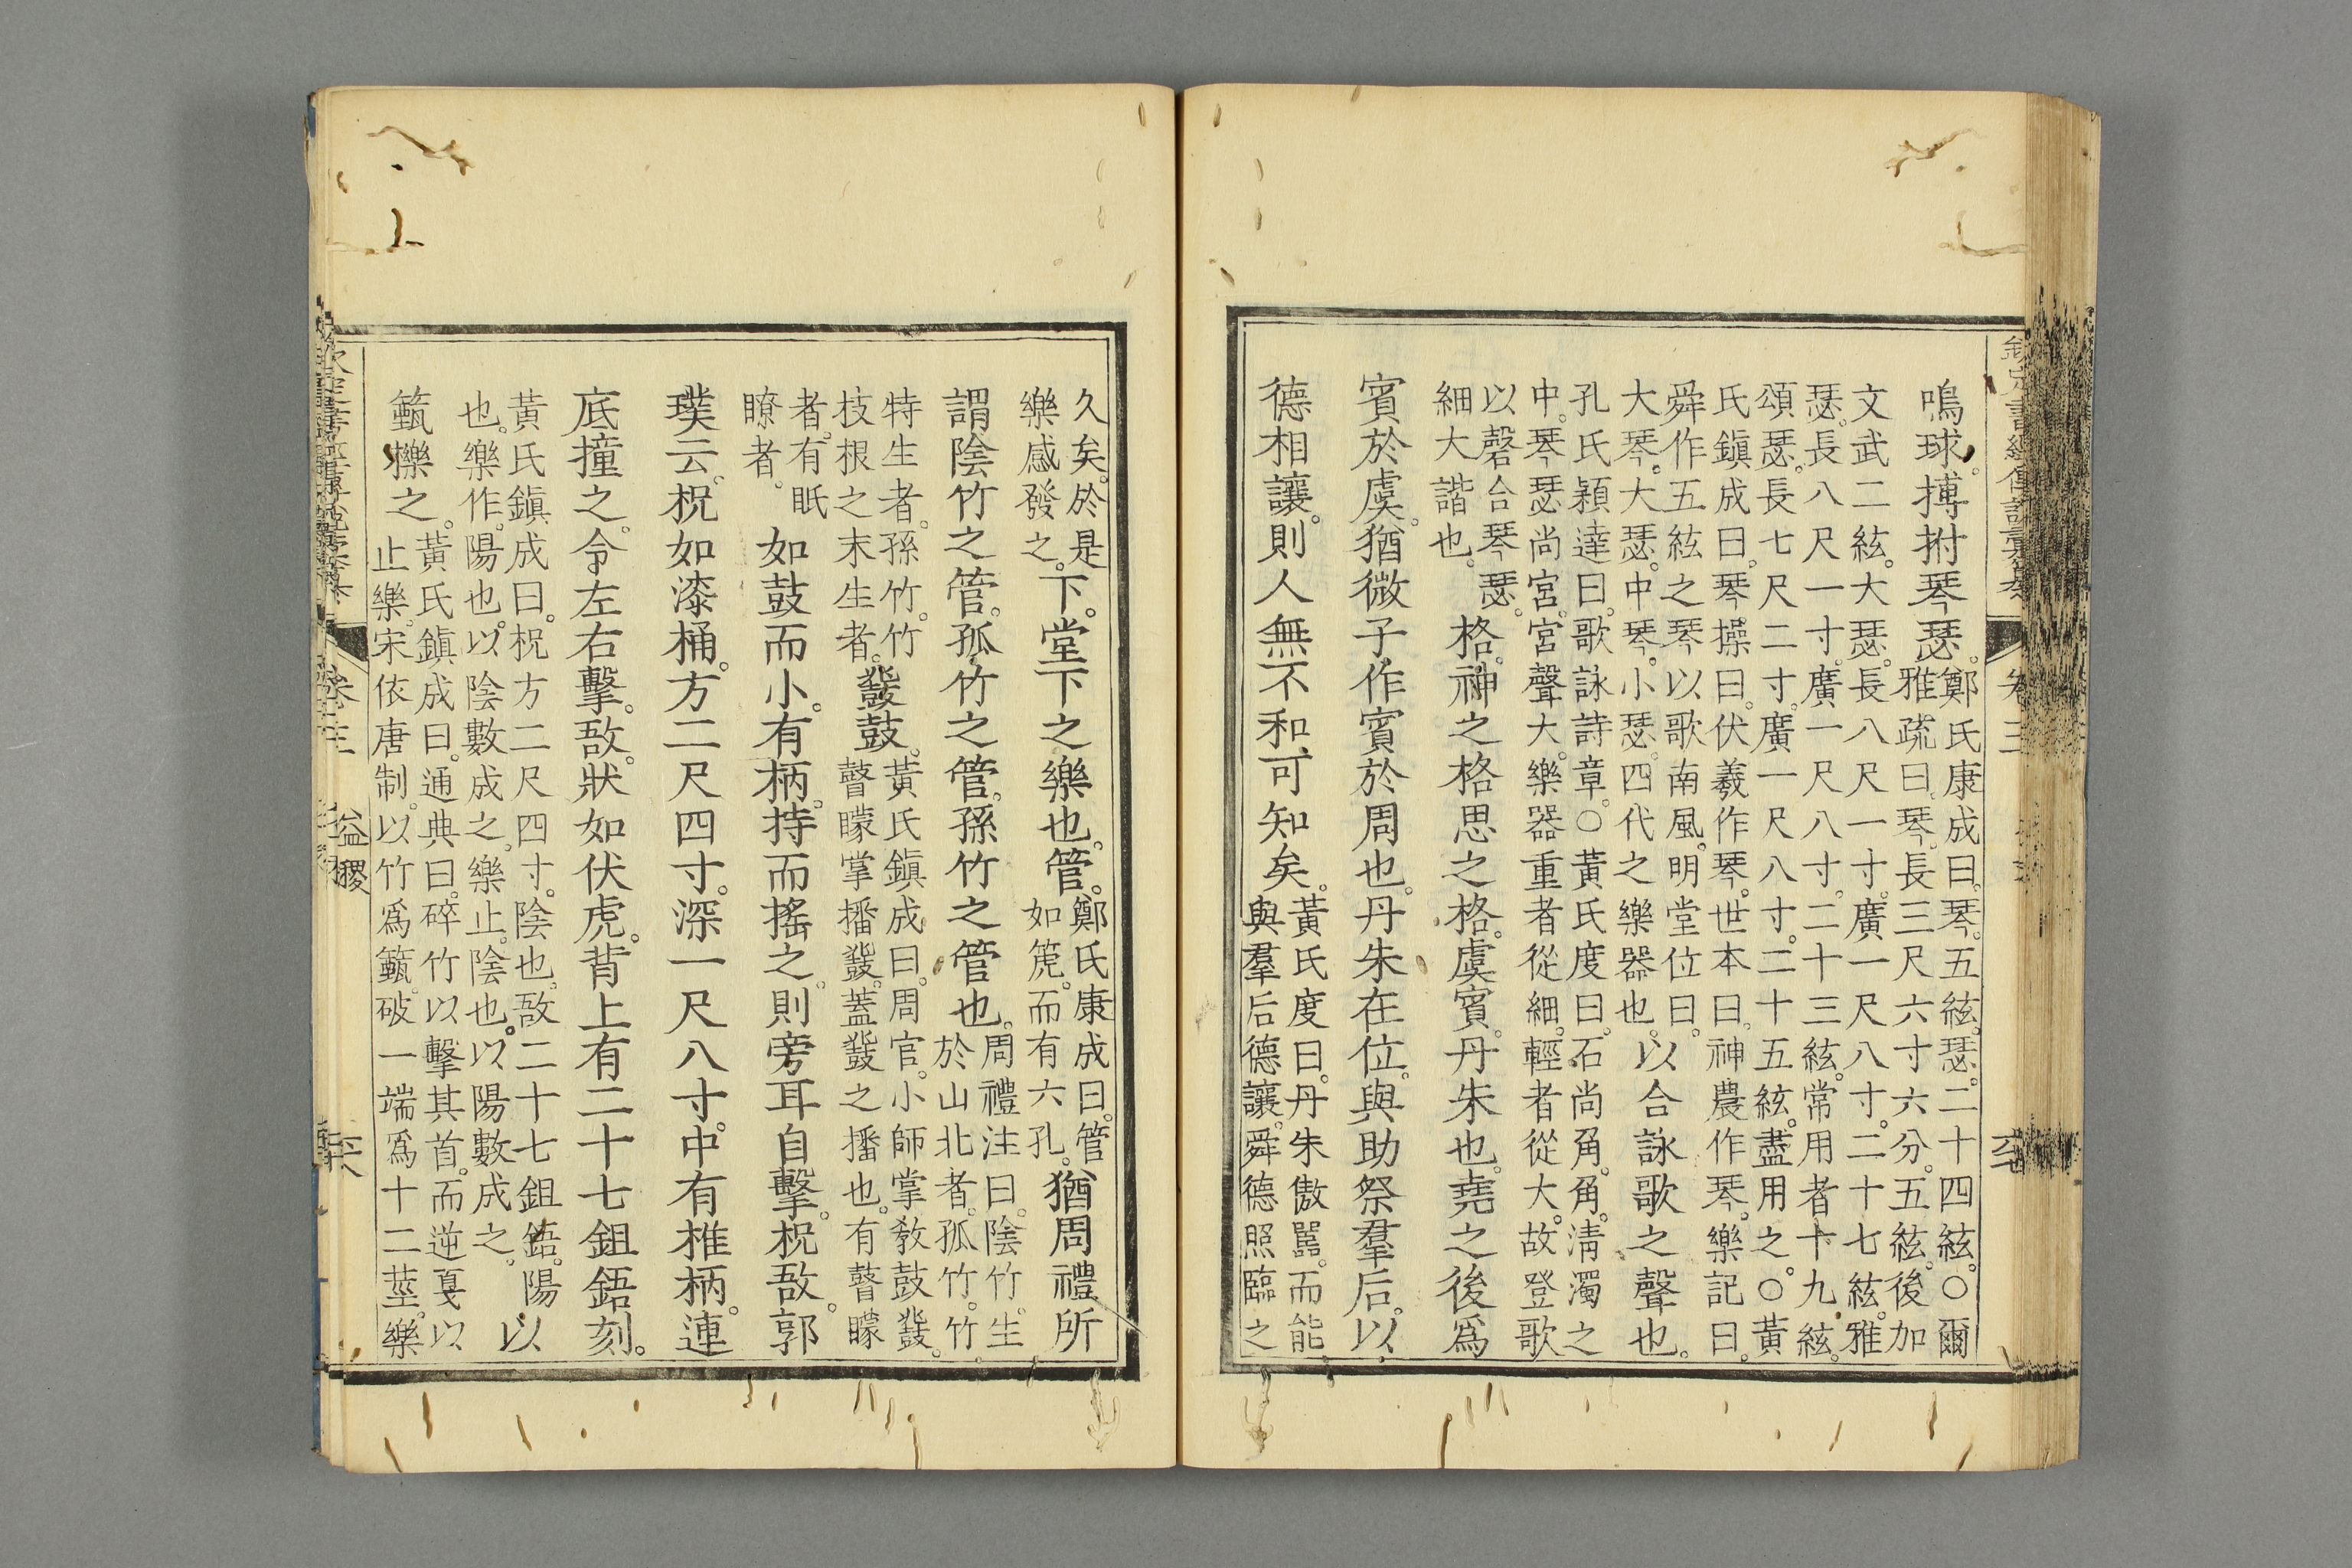 欽定書經傳說彙纂 卷三
鳴球。搏拊琴瑟。鄭氏康成曰。琴。五絃。瑟。二十四絃。○爾
雅疏曰。琴。長三尺六寸六分。五絃。後加
文武二絃。大瑟。長八尺一寸。廣一尺八寸。二十七絃。雅
瑟。長八尺一寸。廣一尺八寸。二十三絃。常用者十九絃。
頌瑟。長七尺二寸。廣一尺八寸。二十五絃。盡用之。○黃
氏鎭成曰。琴。操曰。伏羲作琴。世本曰。神農作琴。樂記曰。
舜作五絃之琴。以歌南風。明堂位曰。
大琴。大瑟。中琴。小瑟。四代之樂器也。以合詠歌之聲也。
孔氏穎達曰。歌詠詩章。○黃氏度曰。石尚角。角。淸濁之
中。琴瑟尚宮。宮聲大。樂器重者從細。輕者從大。故登歌
以磬合琴瑟。
細大諧也。格。神之格思之格。虞賓。丹朱也。堯之後爲
賓於虞。猶微子作賓於周也。丹朱在位。與助祭羣后。以
德相讓。則人無不和。可知矣。黃氏度曰。丹朱傲嚚。而能
與羣后德讓。舜德照臨之
久矣。於是
樂感發之。下。堂下之樂也。管。鄭氏康成曰。管
如箎。而有六孔。猶周禮所
謂陰竹之管。孤竹之管。孫竹之管也。周禮注曰。陰竹。生
於山北者。孤竹。竹
特生者。孫竹。竹
枝根之末生者。鼗鼓。黃氏鎭成曰。周官。小師掌敎鼓鼗。
瞽矇掌播鼗。蓋鼗之播也。有瞽矇
者。有眂
瞭者。如鼓而小。有柄。持而搖之。則旁耳自擊。柷敔。郭
璞云。柷如漆桶。方二尺四寸。深一尺八寸。中有椎柄。連
底撞之。令左右擊。敔。狀如伏虎。背上有二十七鉏鋙刻。
黃氏鎭成曰。柷方二尺四寸。陰也。敔二十七鉏鋙。陽
也。樂作。陽也。以陰數成之。樂止。陰也。以陽數成之。以
籈櫟之。黃氏鎭成曰。通典曰。碎竹以擊其首。而逆戛以
止樂。宋依唐制。以竹爲籈。破一端爲十二莖。樂
益稷